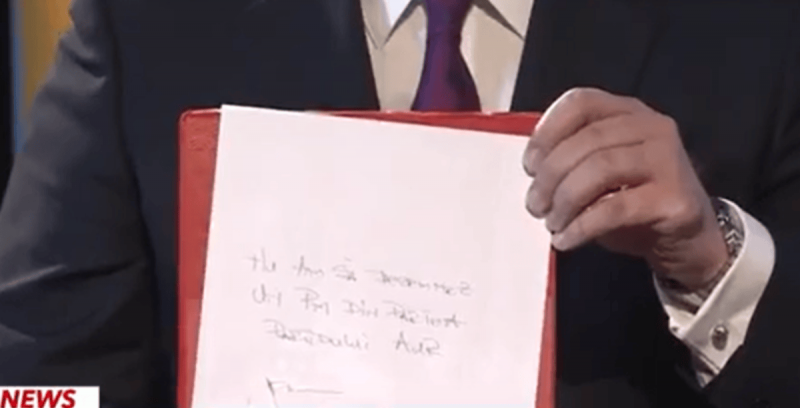 NU AM SĂ DESEMNEZ
UN PM DIN PARTEA
PARTIDULUI AUR
NEWS